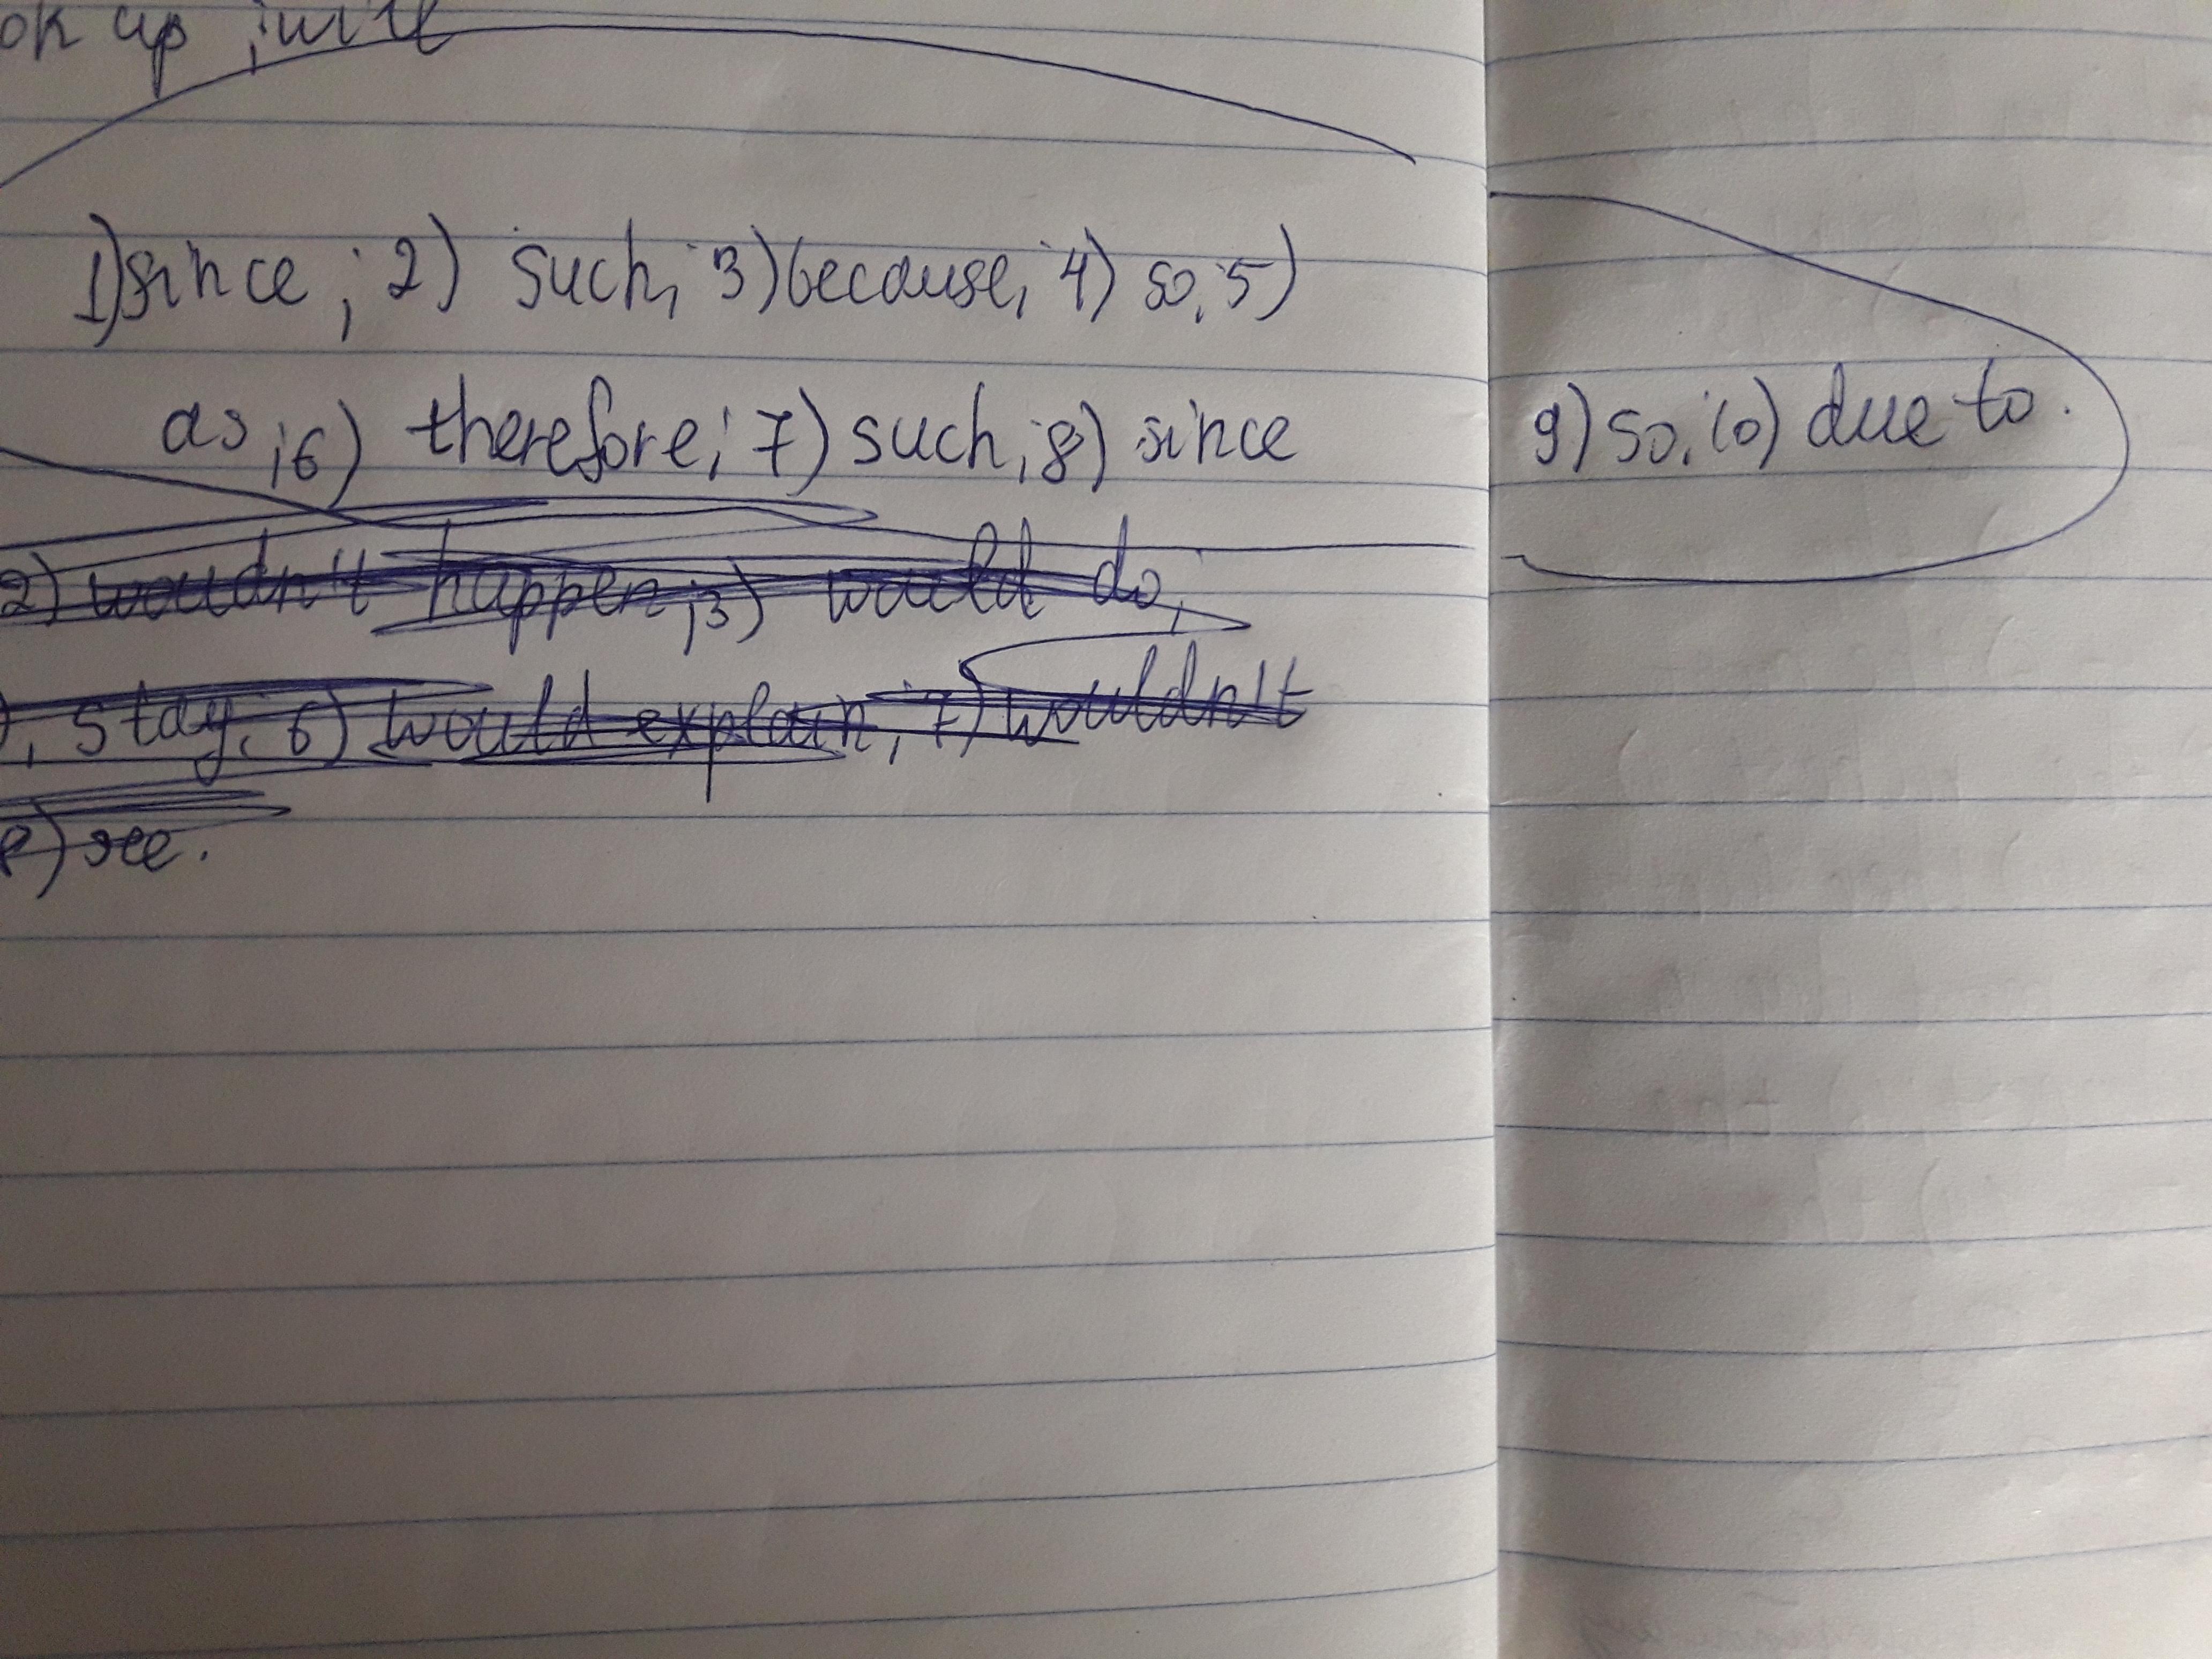 ok up ; will
1) since ; 2) such ; 3) because ; 4) so ; 5)
as ; 6) therefore ; 7) such ; 8) since
9) so ; 10) due to.
2) wouldn't happen ; 3) would do,
, stay ; 6) would explain ; 7) wouldn't
8) see.